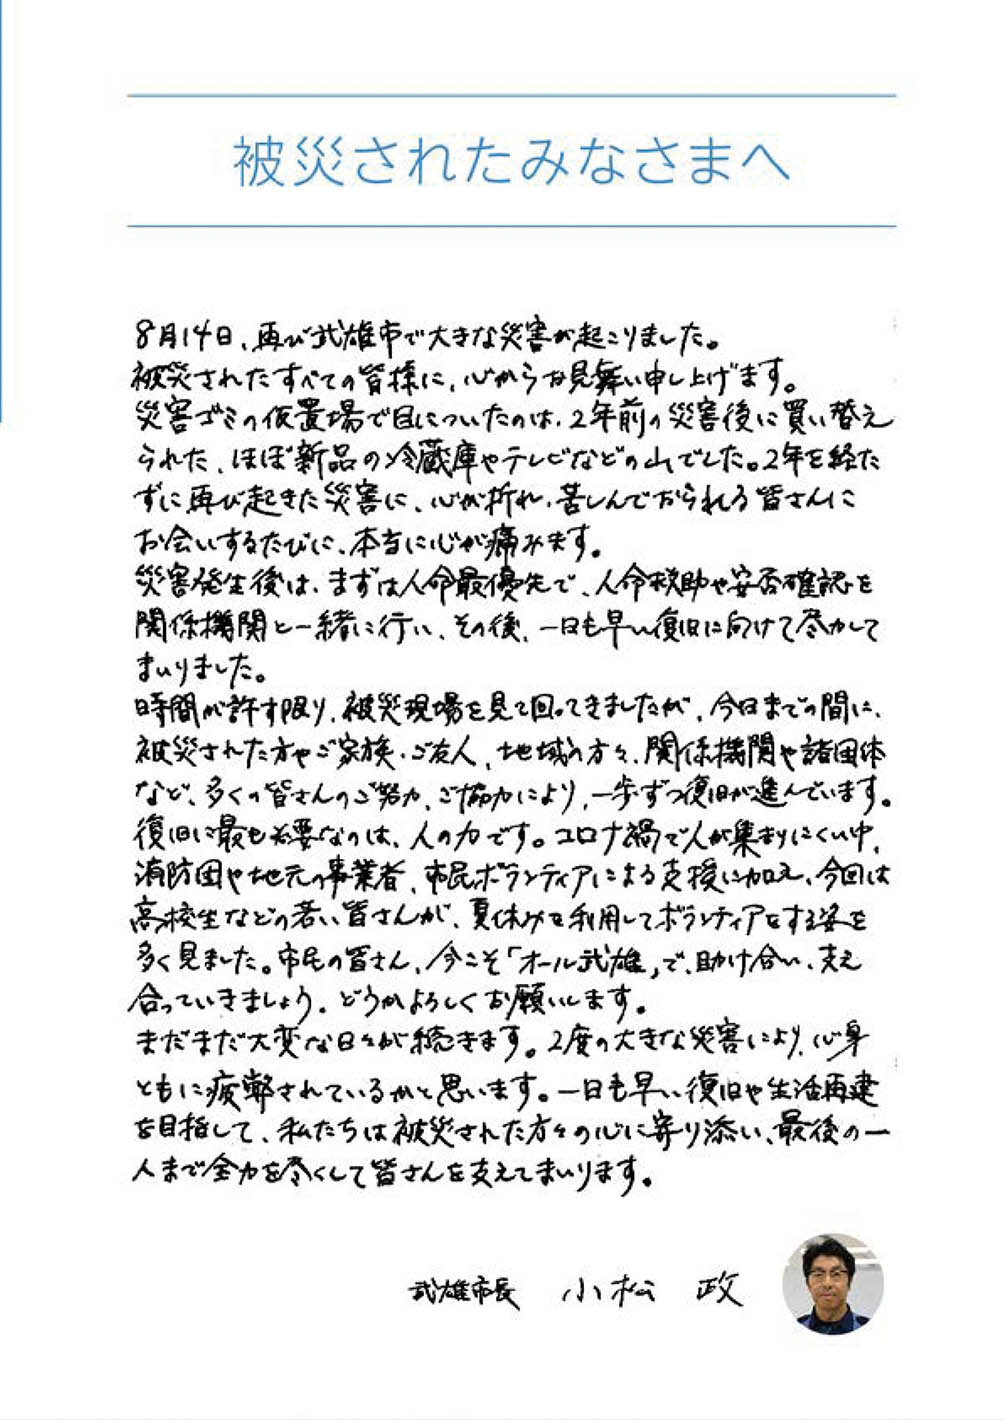 被災されたみなさまへ
8月14日、再び武雄市で大きな災害が起こりました。
被災されたすべての皆様に、心からお見舞い申し上げます。
災害ゴミの仮置場で目についたのは、2年前の災害後に買い替え
られた、ほぼ新品の冷蔵庫やテレビなどの山でした。2年を経た
ずに再び起きた災害に、心が折れ、苦しんでおられる皆さんに
お会いするたびに、本当に心が痛みます。
災害発生後は、まずは人命最優先で、人命救助や安否確認を
関係機関と一緒に行い、その後、一日も早い復旧に向けて尽力して
まいりました。
時間が許す限り、被災現場を見て回ってきましたが、今日までの間に、
被災された方やご家族・ご友人、地域の方々、関係機関や諸団体
など、多くの皆さんのご努力、ご協力により、一歩ずつ復旧が進んでいます。
復旧に最も必要なのは、人の力です。コロナ禍で人が集まりにくい中、
消防団や地元の事業者、市民ボランティアによる支援に加え、今回は
高校生などの若い皆さんが、夏休みを利用してボランティアをする姿を
多く見ました。市民の皆さん、今こそ「オール武雄」で、助け合い、支え
合っていきましょう。どうかよろしくお願いします。
まだまだ大変な日々が続きます。2度の大きな災害により、心身
ともに疲弊されているかと思います。一日も早い復旧や生活再建
を目指して、私たちは被災された方々の心に寄り添い、最後の一
人まで全力を尽くして皆さんを支えてまいります。
武雄市長 小松 政